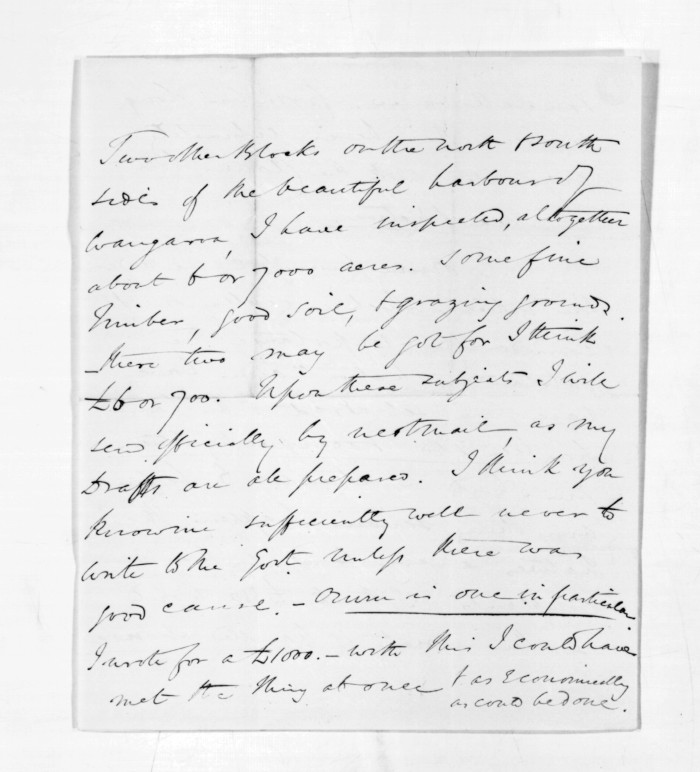 Two other Blocks on the north & south
sides of the beautiful harbour of
Wangaroa, I have inspected, altogether
about 6 or 7000 acres. Some fine
Timber, good soil, & grazing grounds.
these two may be got for I think
£6 or 700. Upon these subjects I will
send officially by next mail, as my
Drafts are all prepared. I think you
know me sufficiently well never to
write to the Govt. unless there was
good cause. - Oruru is one in particular
I wrote for a £1000. - with this I could have
met the thing at once & as Economically
as could be done.